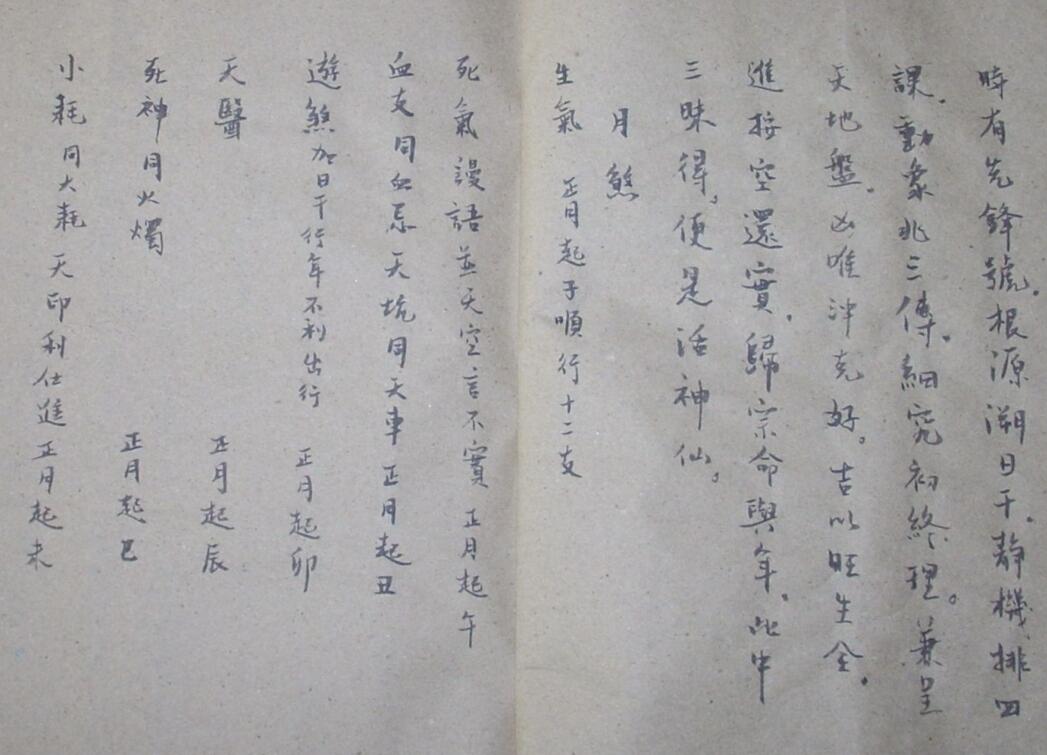 時有先鋒號。根源溯日干。靜機排四
課。動象兆三傳。細究初終理。兼呈
天地盤。凶唯沖克好。吉以旺生全。
進按空還實。歸宗命與年。此中
三昧得。便是活神仙。
月煞
生氣 正月起子順行十二支
死氣謾語並天空言不實 正月起午
血支同血忌天坑同天車正月起丑
遊煞加日干行年不利出行 正月起卯
天醫 正月起辰
死神同火燭 正月起巳
小耗同大耗 天印利仕進正月起未